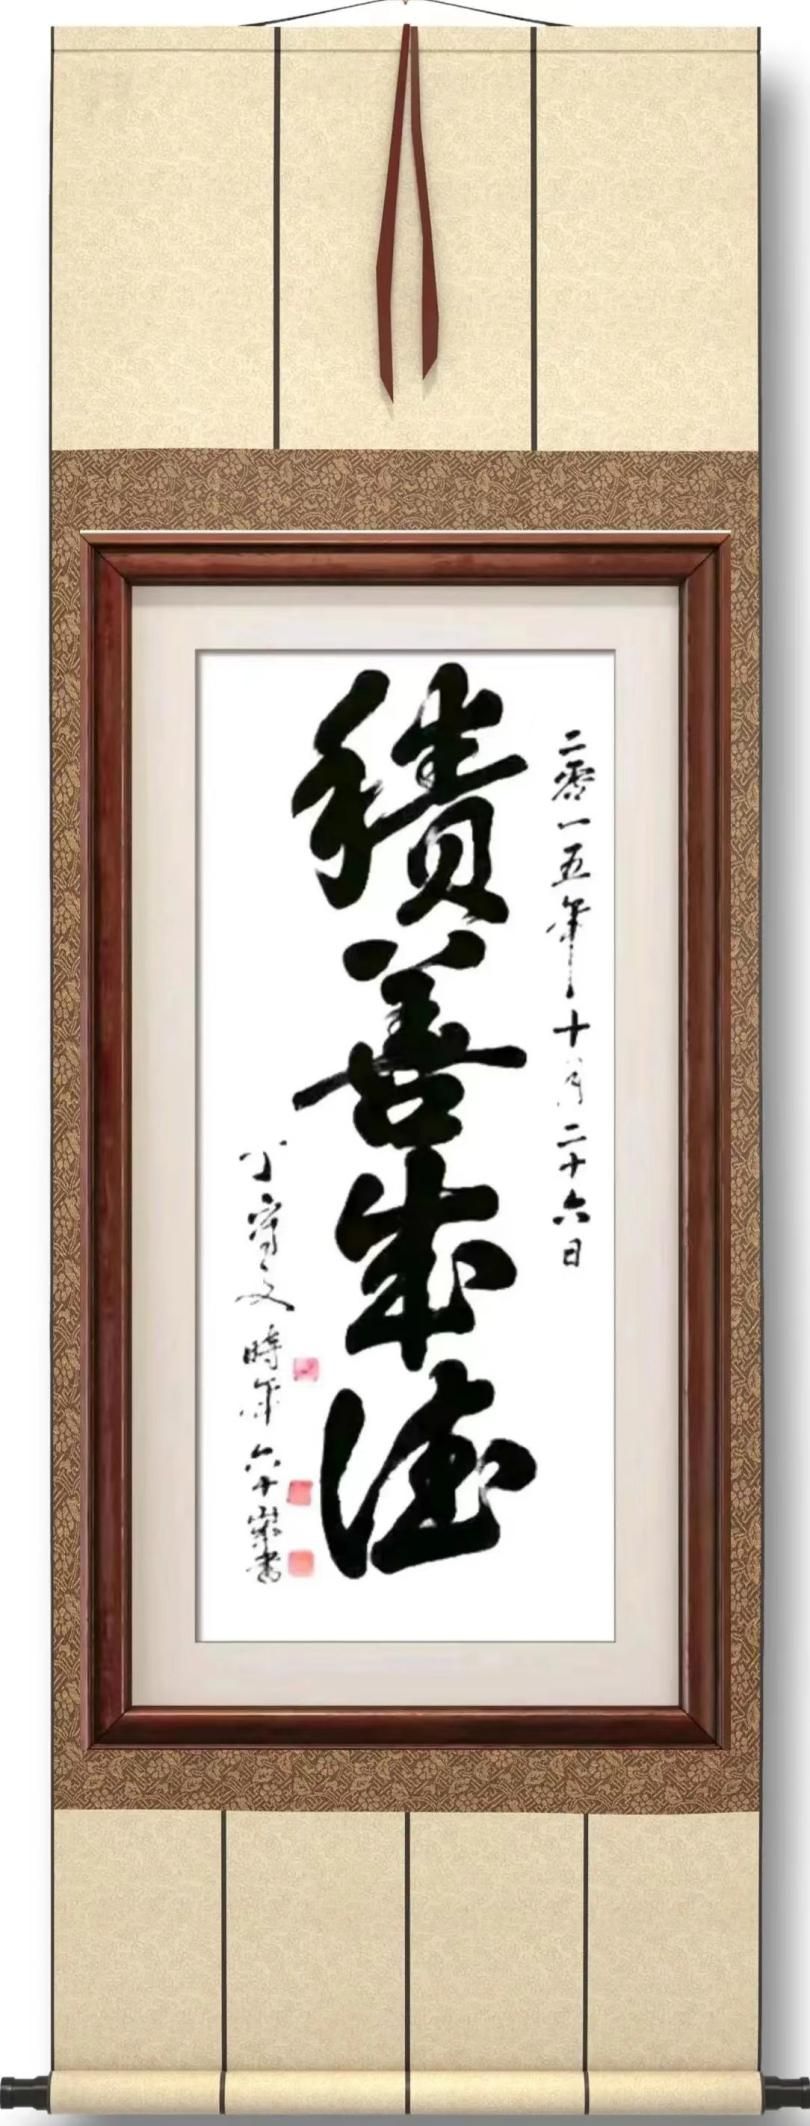 二零一五年十月二十六日
積善成德
丁寶文時年六十歲書